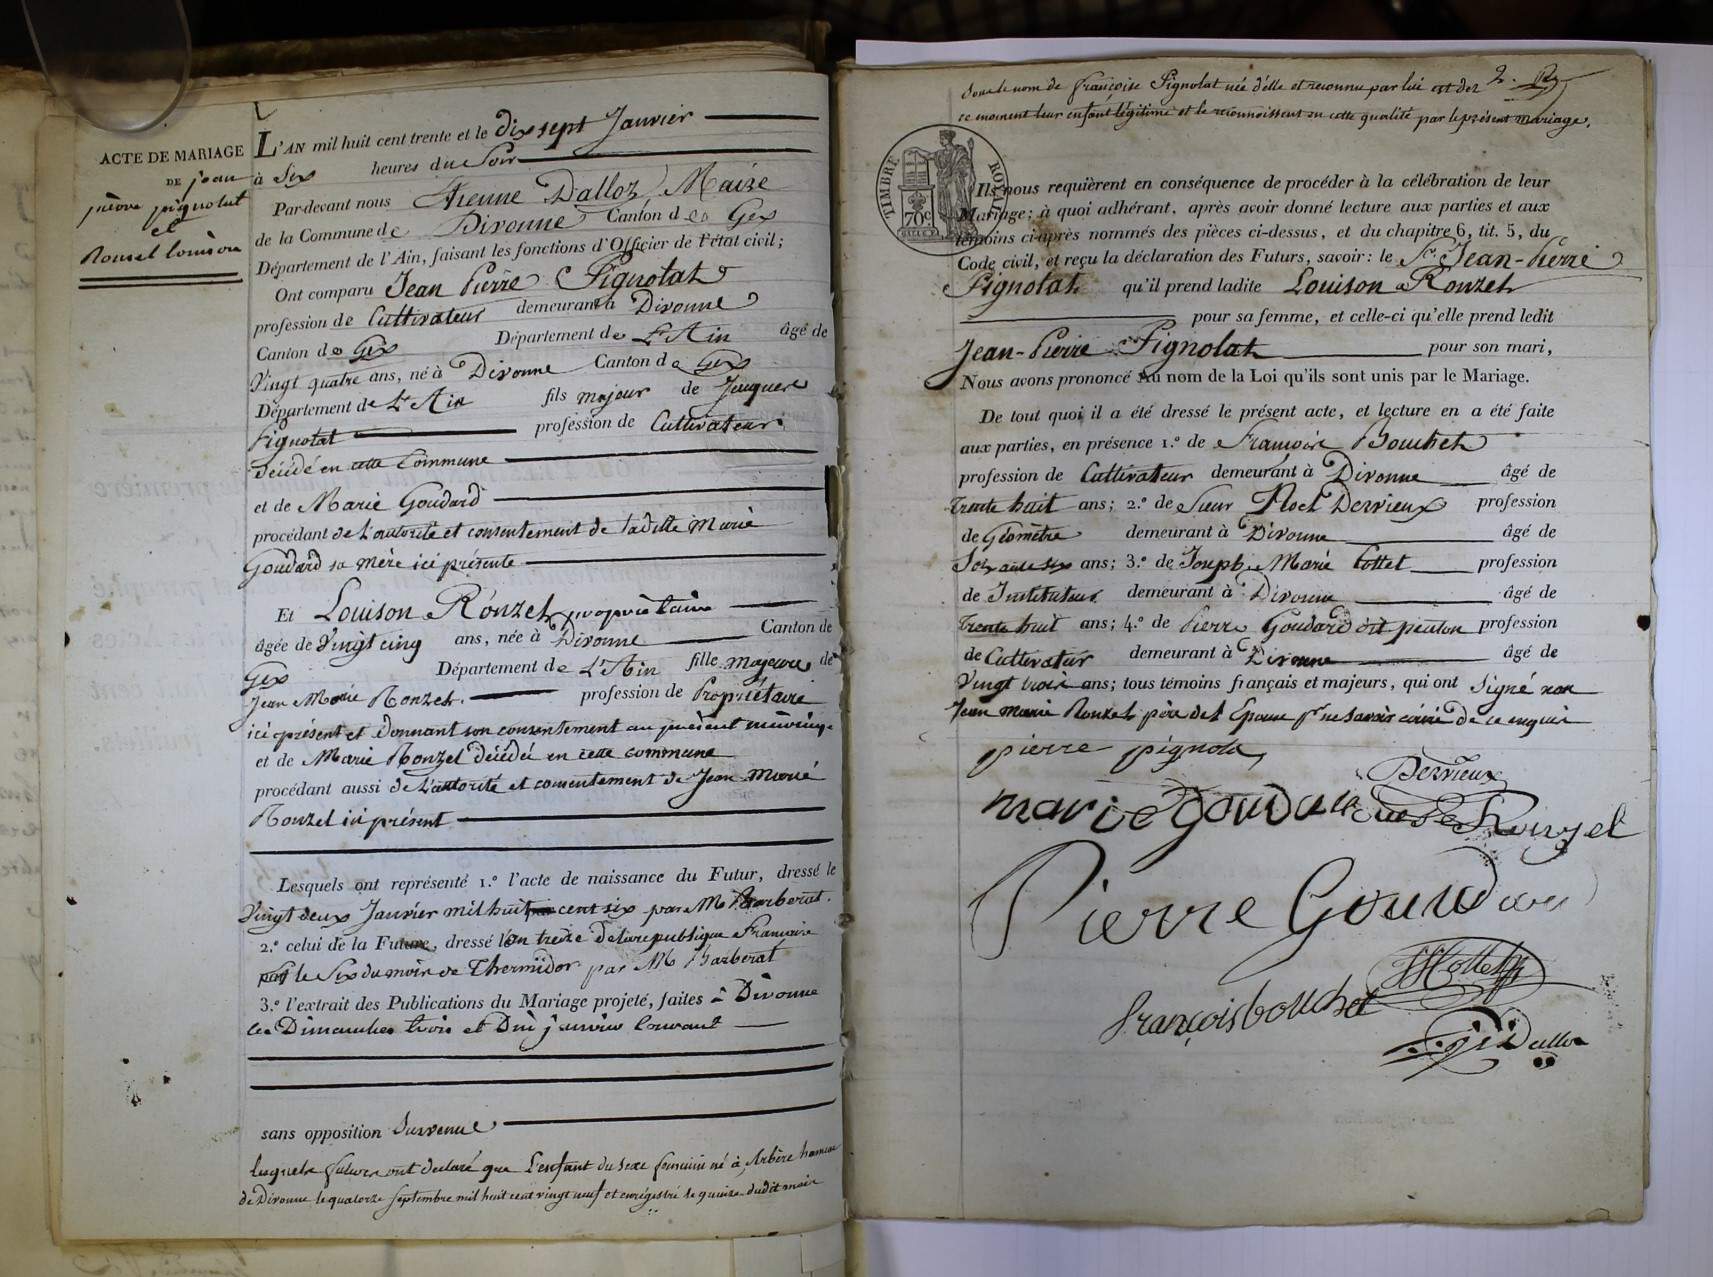 ACTE DE MARIAGE
DE jean
pierre pignolat
et
Ronzet louison
L'AN mil huit cent trente et le dix sept Janvier
à Six heures du Soir
Par-devant nous Etienne Dalloz Maire
de la Commune de Divonne Canton de Gex
Département de l'Ain, faisant les fonctions d'Officier de l'état civil;
Ont comparu Jean Pierre Pignolat
profession de Cultivateur demeurant à Divonne
Canton de Gex Département de L'Ain âgé de
Vingt quatre ans, né à Divonne Canton de Gex
Département de L'Ain fils majeur de Jacques
Pignolat profession de Cultivateur
Décédé en cette Commune
et de Marie Goudard
procédant de L'autorité et consentement de ladite Marie
Goudard sa mère ici présente
Et Louison Ronzet propriétaire
âgée de Vingt cinq ans, née à Divonne Canton de
Gex Département de L'Ain fille majeure de
Jean Marie Ronzet profession de Propriétaire
ici présent et Donnant son consentement au présent mariage
et de Marie Ronzet décédée en cette commune
procédant aussi de L'autorité et consentement de Jean Marie
Ronzet ici présent
Lesquels ont représenté 1.° l'acte de naissance du Futur, dressé le
Vingt deux Janvier mil huit cent six par M. Barberat.
2.° celui de la Future, dressé l'an treize de la republique Francaise
le Six du mois de Thermidor par M. Barberat
3.° l'extrait des Publications du Mariage projeté, faites à Divonne
les Dimanches trois et Dix janvier Courant
sans opposition Survenue
lesquels futurs ont declaré que L'enfant du sexe feminin né à Arbère hameau
de Divonne le quatorze septembre mil huit cent vingt neuf et enrégistré le quinze dudit mois
sous le nom de françoise Pignolat née d'elle et reconnu par lui est dez 2.
ce moment leur enfant légitime et le reconnoissent en cette qualité par le présent mariage.
TIMBRE ROYAL
70c
Ils nous requièrent en conséquence de procéder à la célébration de leur
Mariage; à quoi adhérant, après avoir donné lecture aux parties et aux
témoins ci-après nommés des pièces ci-dessus, et du chapitre 6, tit. 5, du
Code civil, et reçu la déclaration des Futurs, savoir: le Sr. Jean-Pierre
Pignolat qu'il prend ladite Louison Ronzet
pour sa femme, et celle-ci qu'elle prend ledit
Jean-Pierre Pignolat pour son mari,
Nous avons prononcé Au nom de la Loi qu'ils sont unis par le Mariage.
De tout quoi il a été dressé le présent acte, et lecture en a été faite
aux parties, en présence 1.° de François Bouchet
profession de Cultivateur demeurant à Divonne âgé de
trente huit ans; 2.° de Sieur Noel Dervieux profession
de Géomètre demeurant à Divonne âgé de
Soixante six ans; 3.° de Joseph Marie Cottet profession
de Instituteur demeurant à Divonne âgé de
trente huit ans; 4.° de Pierre Goudard dit profession
de Cultivateur demeurant à Divonne âgé de
Vingt trois ans; tous témoins français et majeurs, qui ont Signé non
Jean marie Ronzet père de l'Epouse pr. ne savoir écrire de ce enquis
pierre pignola
Dervieux
marie Goudard
Ronzet
Pierre Goudard
Cottet
françois bouchet
Dalloz